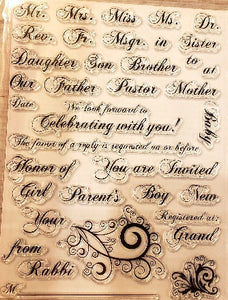 Mr. Mrs. Miss Ms. Dr.
Rev. Fr. Msgr. in Sister
Daughter Son Brother to at
Our Father Pastor Mother
Date We look forward to
Celebrating with you!
Baby
The favor of a reply is requested on or before
Honor of You are Invited
Girl Parent's Boy New
Your Registered at:
Grand
from
Rabbi
M